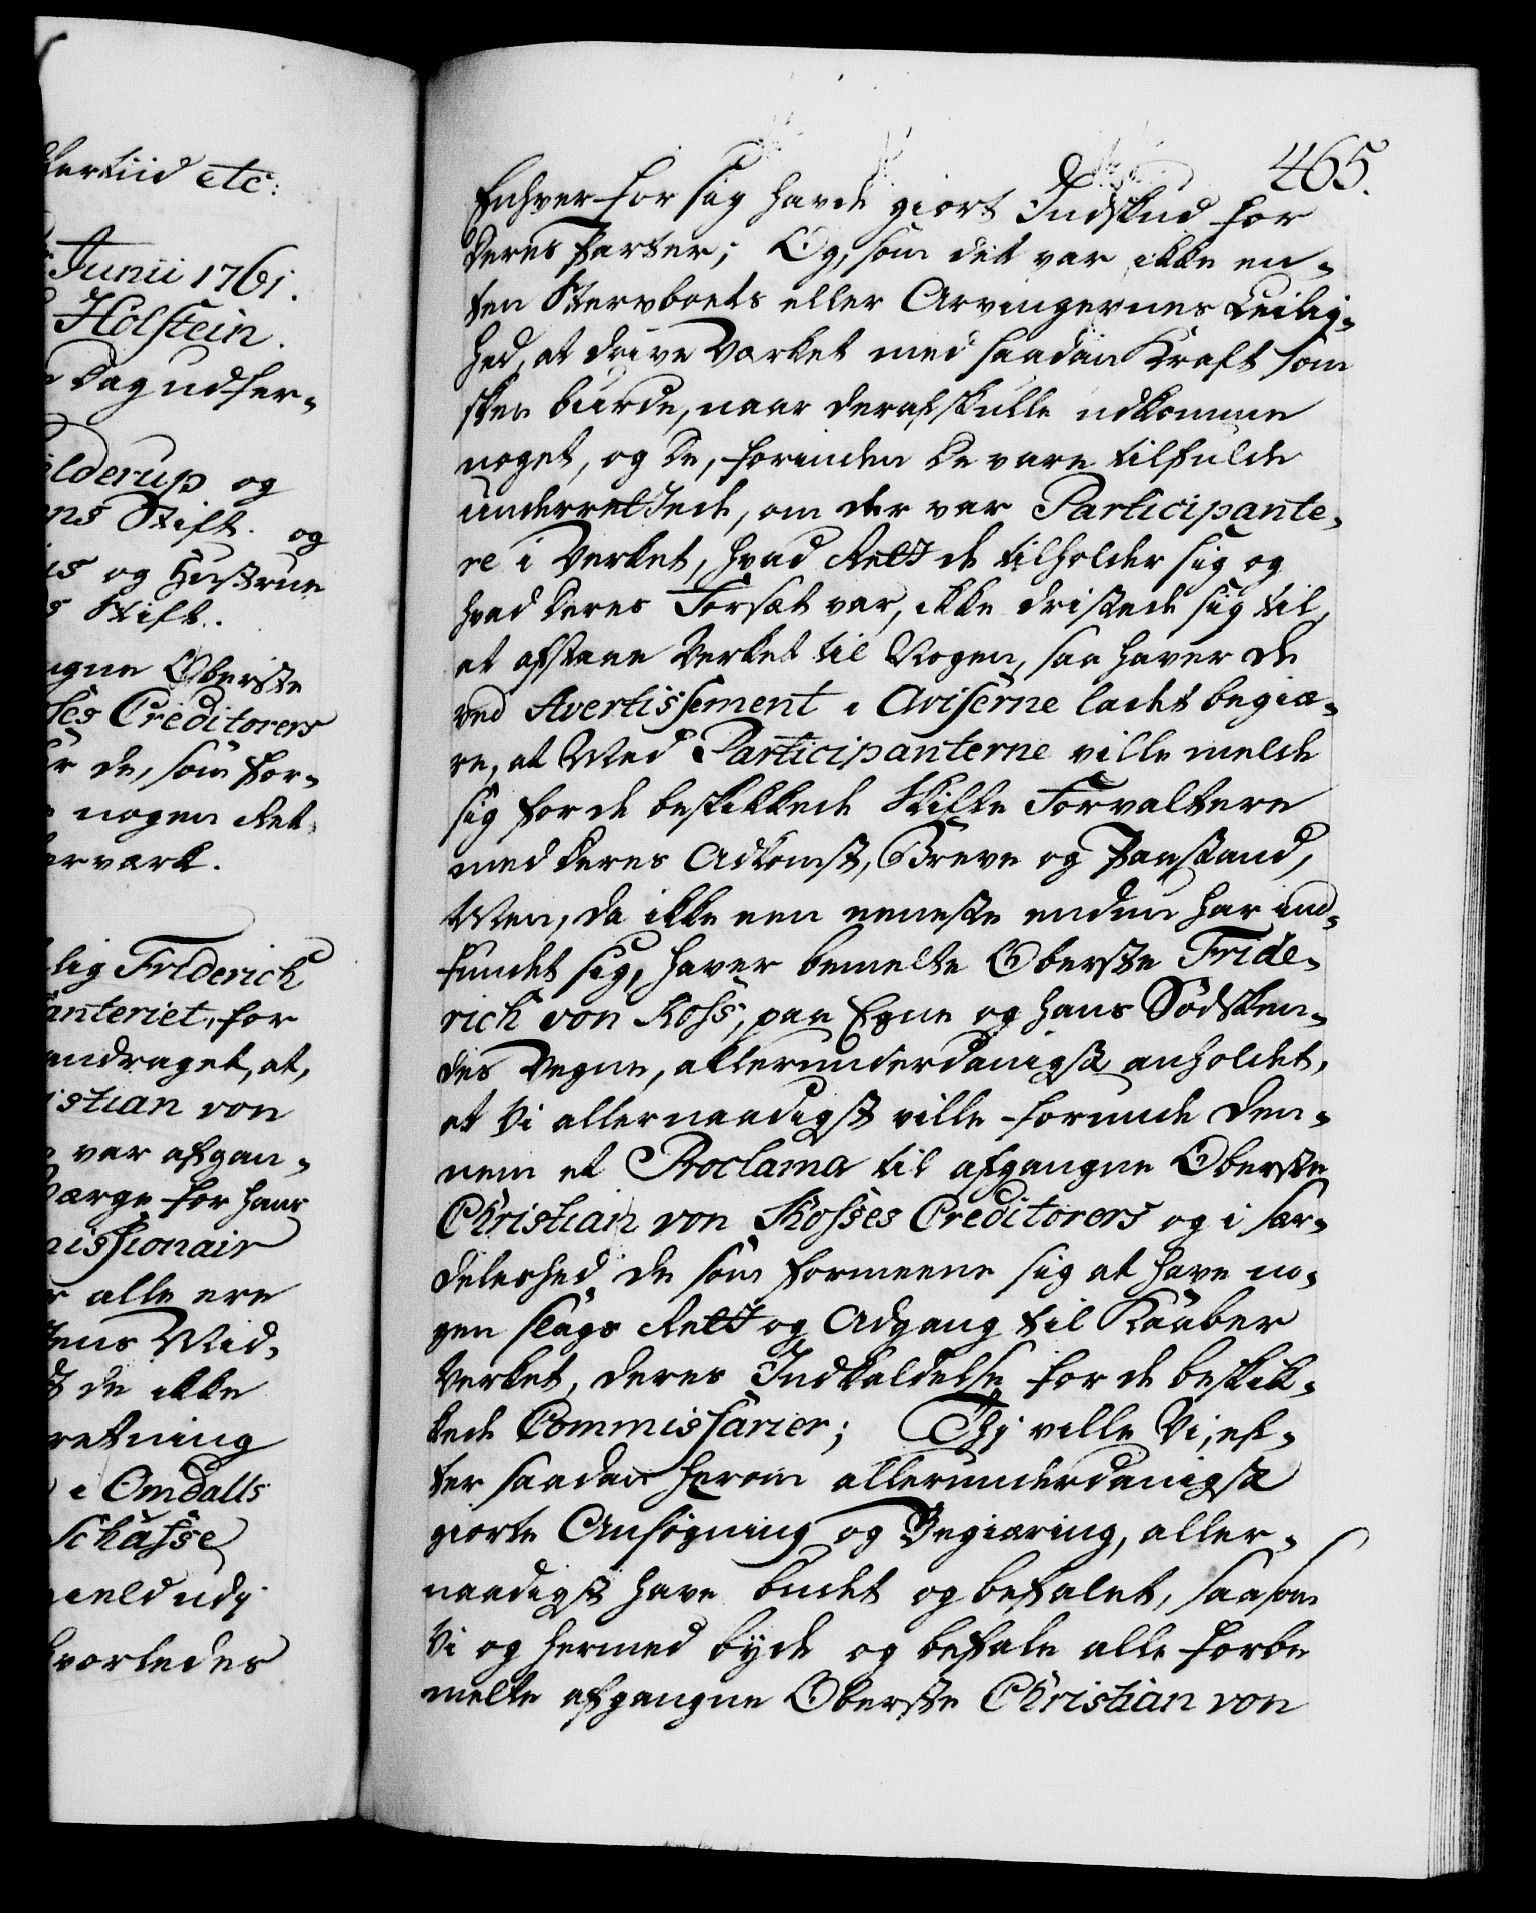 hertiid etc:
Junii 1761.
Holstein.
Dag udfær-
elderup og
ns Stift. og
is og Hustrue
s Stift.
ngne Oberste
ses Creditorers
r de, som for-
nogen Ret
erværk.
lig Friderich
anteriet, for
andraget, at,
istian von
var afgan-
Værge for hans
missionair
r alle ere
tens Mid-
de ikke
retning
i Omdalls
Schasse
gield udj
hvorledes
465.
Enhver for sig havde giort Indskud for
deres Parter; Og, som det var ikke en-
ten Stervboets eller Arvingernes Leilig-
hed, at drive Værket med saadan Kraft som
skee burde, naar deraf skulle udkomme
noget, og De, forinden de vare tilfulde
underrettede, om der var Participante-
re i Verket, hvad Rett de tilholder sig og
hvad deres Forsæt var, ikke dristede sig til
at afstaae Verket til Nogen, saa haver de
ved Avertissement i Aviserne ladet begiæ-
re, at Med Participanterne ville melde
sig for de beskikkede Skifte Forvaltere
med deres Adkomst, Breve og Paastand,
Men, da ikke een eeneste endnu har ind-
fundet sig, haver bemelte Oberste Fride-
rich von Koss, paa Egne og hans Sødsken-
des Vegne, allerunderdanigst anholdet,
at Vi allernaadigst ville forunde den-
nem et Proclama til afgangne Oberste
Christian von Kosses Creditorers og i sær-
deleshed de som formeene sig at have no-
gen slags Rett og Adgang til Kaaber
Verket, deres Indkaldelse for de beskik-
kede Commissarier; Thj ville Vi, ef-
ter saadan herom allerunderdanigst
giorte Ansøgning og Begiæring, aller-
naadigst have budet og befalet, saasom
Vi og hermed byde og befale alle forbe
melte afgangne Oberste Christian von